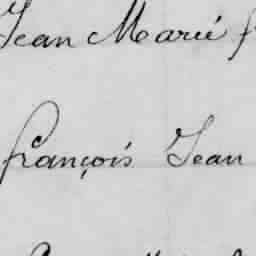 Jean Marié f
françois Jean